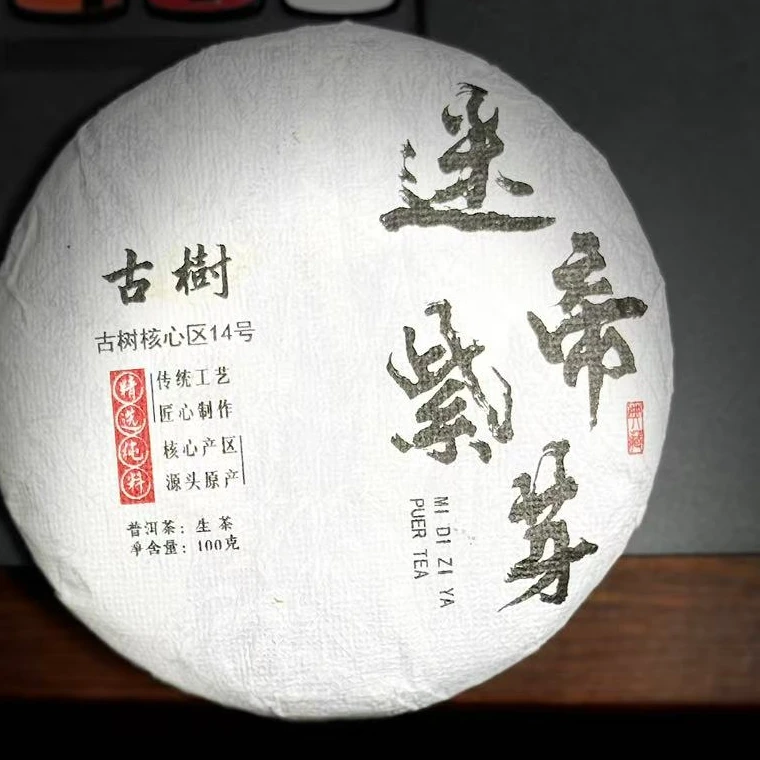 迷帝
紫芽
MI DI ZI YA
PUER TEA
古樹
古树核心区14号
精选纯料
传统工艺
匠心制作
核心产区
源头原产
普洱茶：生茶
净含量：100克